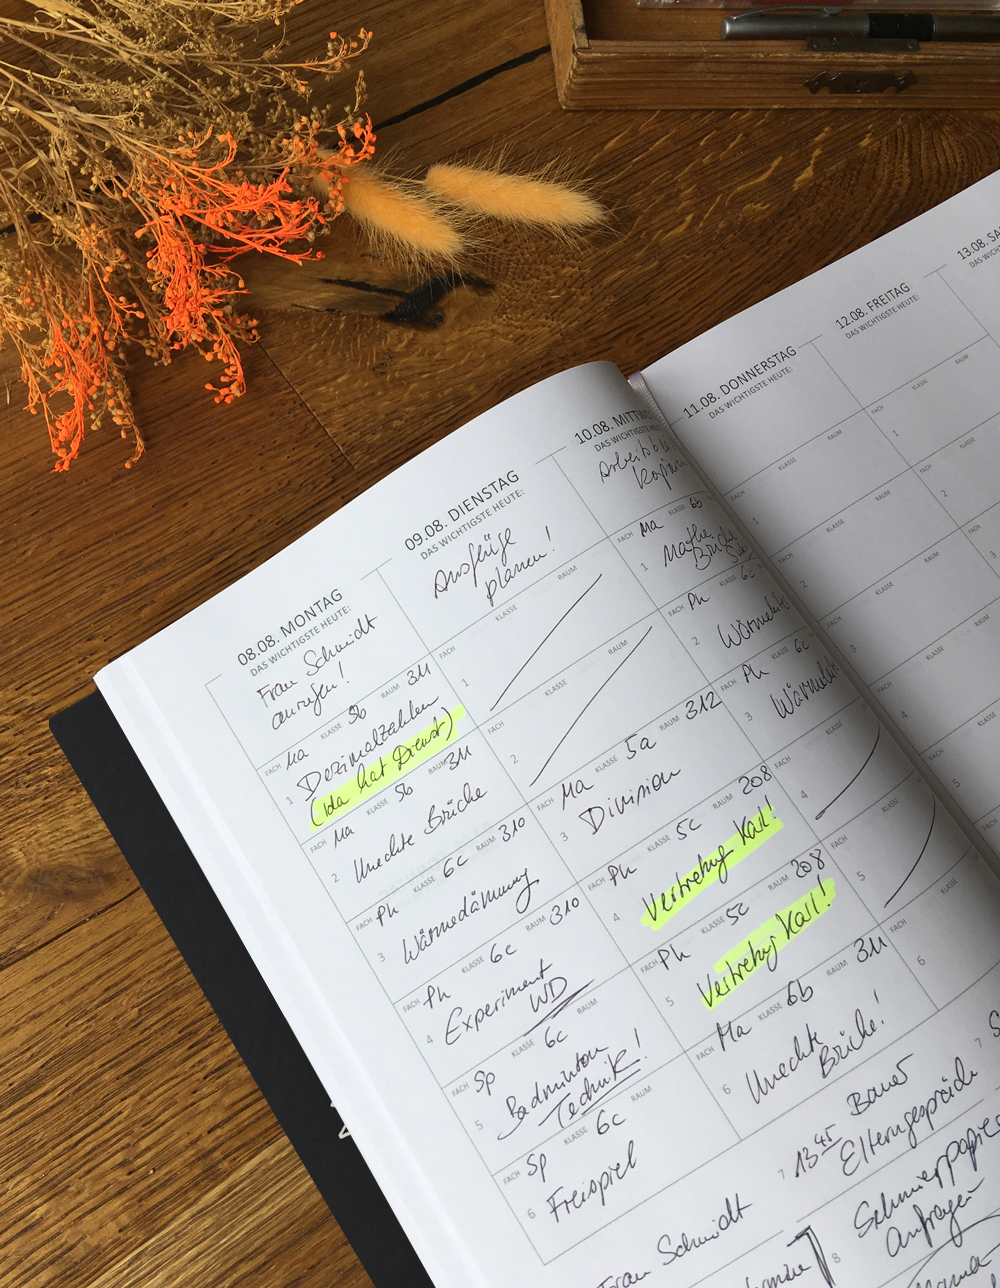 08.08. MONTAG
DAS WICHTIGSTE HEUTE:
Frau Schmidt
anrufen!
FACH Ma KLASSE 5b RAUM 311
1 Dezimalzahlen
(Ida hat Dienst)
FACH Ma KLASSE 5b RAUM 311
2 Unechte Brüche
FACH Ph KLASSE 6c RAUM 310
3 Wärmedämmung
FACH Ph KLASSE 6c RAUM 310
4 Experiment
WD
FACH Sp KLASSE 6c RAUM
5 Badminton
Technik!
FACH Sp KLASSE 6c RAUM
6 Freispiel
Frau Schmidt
09.08. DIENSTAG
DAS WICHTIGSTE HEUTE:
Ausflüge
planen!
FACH KLASSE RAUM
1
FACH KLASSE RAUM
2
FACH Ma KLASSE 5a RAUM 312
3 Division
FACH Ph KLASSE 5c RAUM 208
4 Vertretung Karl!
FACH Ph KLASSE 5c RAUM 208
5 Vertretung Karl!
FACH Ma KLASSE 6b RAUM 311
6 Unechte
Brüche!
7 13:45 Bauer
Elterngespräche
8 Schmierpapier
Anfragen
10.08. MITTWO
DAS WICHTIGSTE HEUTE:
FACH Ma KLASSE 6b
1 Mathe
FACH Ph KLASSE 6c
2
FACH Ph KLASSE 6c
3
FACH KLASSE
4
FACH KLASSE
5
FACH KLASSE
6
7
11.08. DONNERSTAG
DAS WICHTIGSTE HEUTE:
KLASSE RAUM
1
KLASSE RAUM
2
KLASSE RAUM
3
KLASSE
4
5
12.08. FREITAG
DAS WICHTIGSTE HEUTE:
FACH KLASSE RAUM
1
FACH KLASSE
2
FACH
3
13.08. SA
DAS WICHT